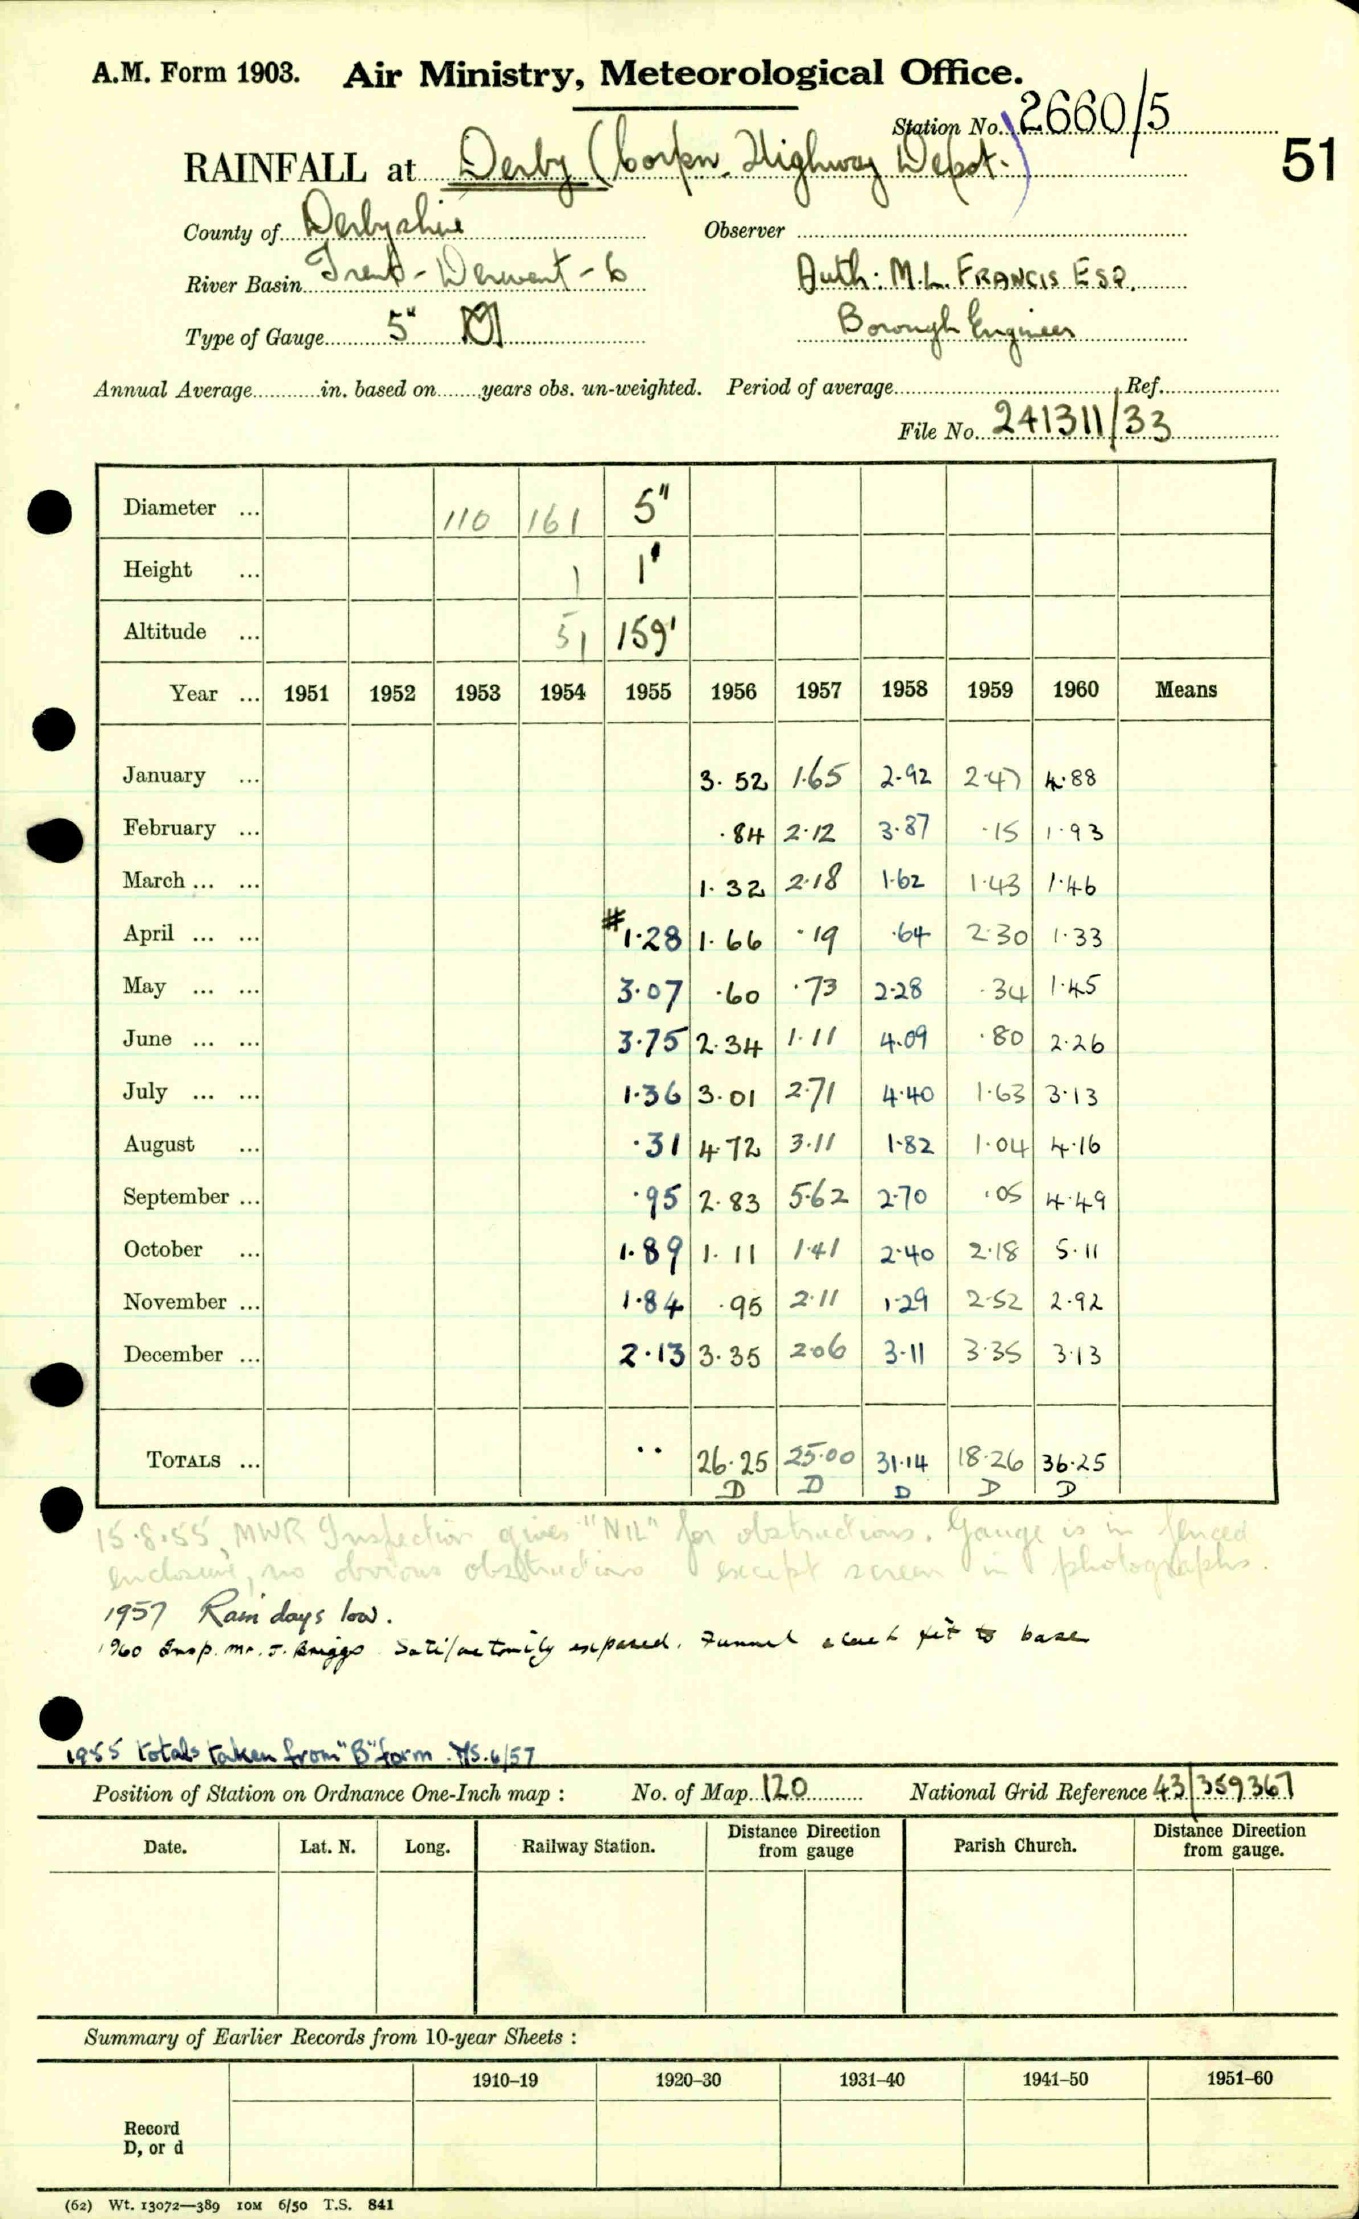 A.M. Form 1903. Air Ministry, Meteorological Office.
Station No. 2660/5
51
RAINFALL at Derby (Corpn. Highway Depot.)
County of Derbyshire Observer
River Basin Trent - Derwent - 6 Auth: M.L. FRANCIS ESQ.
Type of Gauge 5" M Borough Engineer
Annual Average in. based on years obs. un-weighted. Period of average Ref.
File No. 241311/33
Diameter ... 110 161 5"
Height ... 1 1'
Altitude ... 51 159'
Year ... 1951 1952 1953 1954 1955 1956 1957 1958 1959 1960 Means
January ... 3.52 1.65 2.92 2.47 4.88
February ... .84 2.12 3.87 .15 1.93
March ... ... 1.32 2.18 1.62 1.43 1.46
April ... ... #1.28 1.66 .19 .64 2.30 1.33
May ... ... 3.07 .60 .73 2.28 .34 1.45
June ... ... 3.75 2.34 1.11 4.09 .80 2.26
July ... ... 1.36 3.01 2.71 4.40 1.63 3.13
August ... .31 4.72 3.11 1.82 1.04 4.16
September ... .95 2.83 5.62 2.70 .05 4.49
October ... 1.89 1.11 1.41 2.40 2.18 5.11
November ... 1.84 .95 2.11 1.29 2.52 2.92
December ... 2.13 3.35 2.06 3.11 3.35 3.13
TOTALS ... .. 26.25 25.00 31.14 18.26 36.25
D D D D D
15.8.55, MWR Inspection gives "NIL" for obstructions. Gauge is in fenced
enclosure, no obvious obstructions except screen in photographs.
1957 Rain days low.
1960 Insp. Mr. J. Briggs. Satisfactorily exposed. Funnel fit to base
1955 totals taken from "B" form. 6/57
Position of Station on Ordnance One-Inch map : No. of Map 120 National Grid Reference 43/359367
Date. Lat. N. Long. Railway Station. Distance from gauge Direction Parish Church. Distance from gauge. Direction
Summary of Earlier Records from 10-year Sheets :
1910–19 1920–30 1931–40 1941–50 1951–60
Record
D, or d
(62) Wt. 13072—389 10M 6/50 T.S. 841